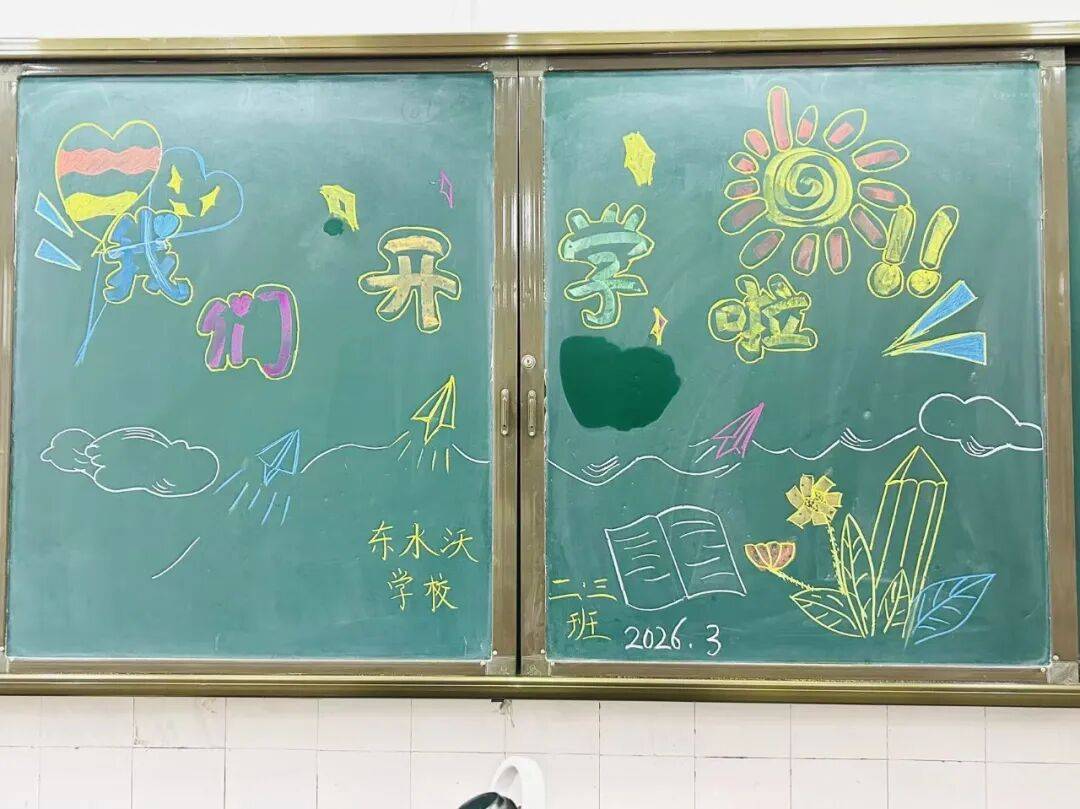 我们开学啦!!
东水沃
学校
二·三
班
2026.3